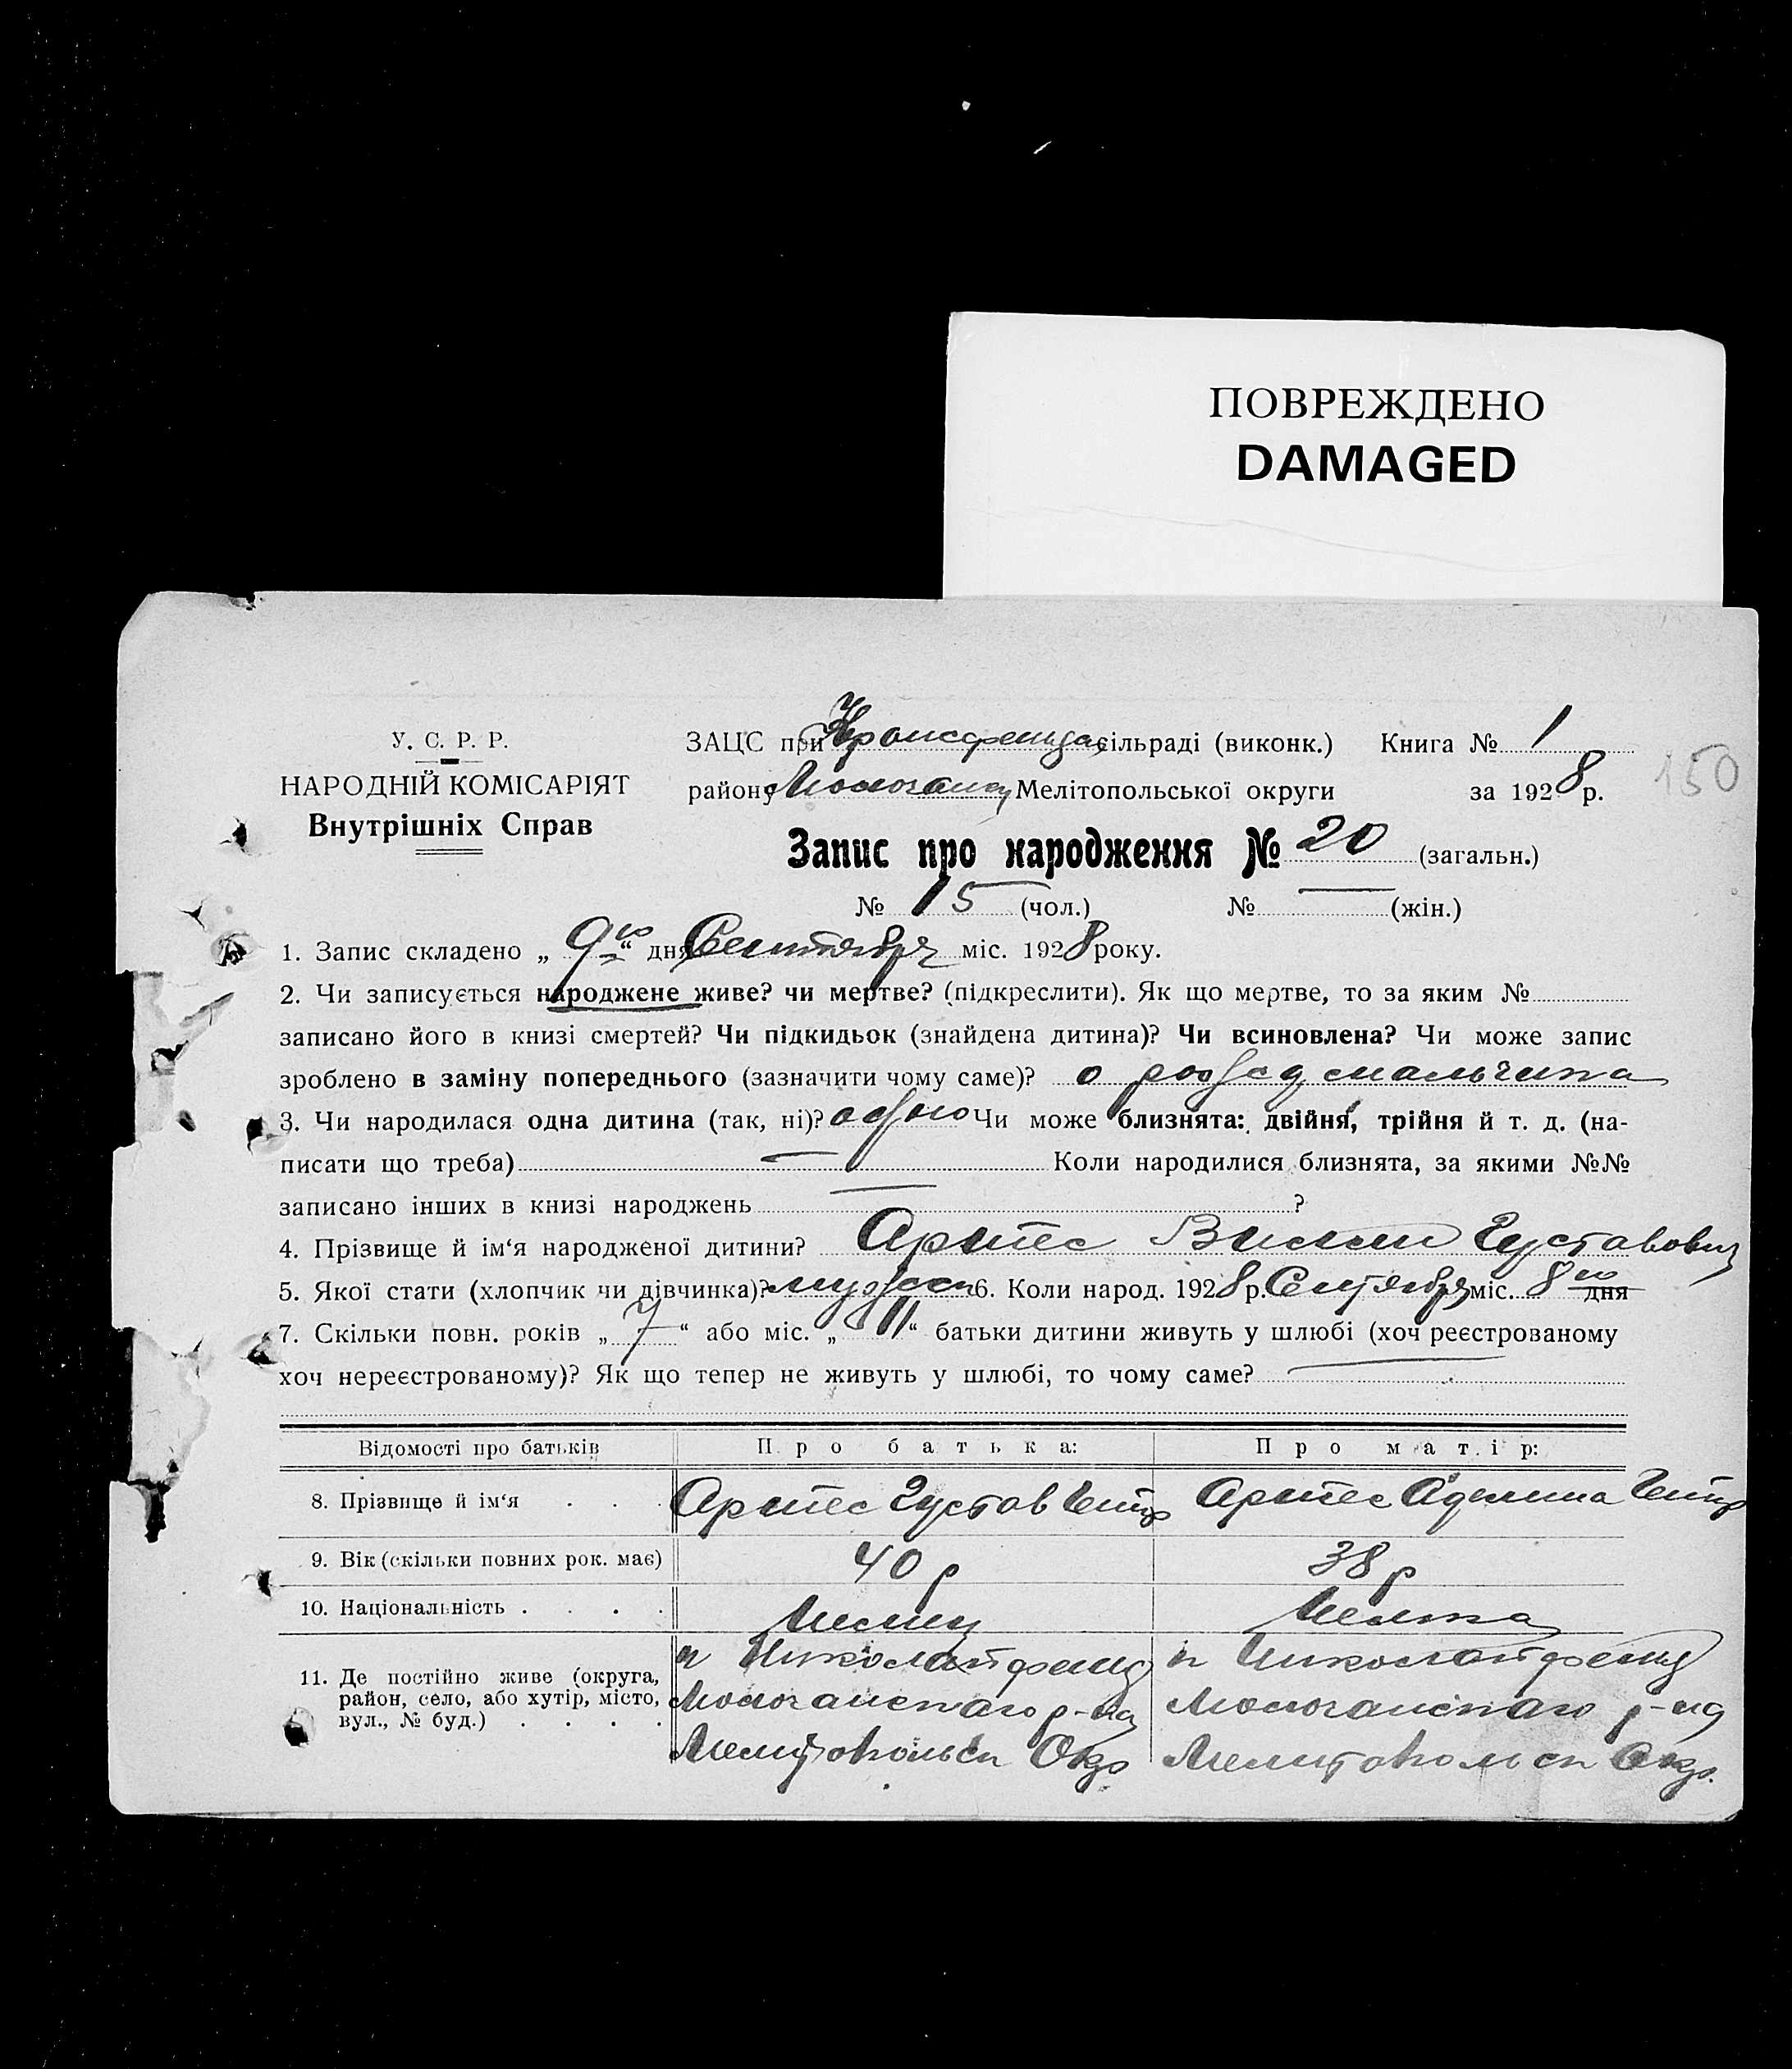 ПОВРЕЖДЕНО
DAMAGED
150
У. С. Р. Р.
НАРОДНІЙ КОМІСАРІЯТ
Внутрішніх Справ
ЗАЦС при сільраді (виконк.) Книга № 1
району Молочанск Мелітопольської округи за 1928 р.
Запис про народження № 20 (загальн.)
№ 15 (чол.) № — (жін.)
1. Запис складено „ 9го “ дня Сентября міс. 1928 року.
2. Чи записується народжене живе? чи мертве? (підкреслити). Як що мертве, то за яким №
записано його в книзі смертей? Чи підкидьок (знайдена дитина)? Чи всиновлена? Чи може запис
зроблено в заміну попереднього (зазначити чому саме)? о мальчика
3. Чи народилася одна дитина (так, ні)? одно Чи може близнята: двійня, трійня й т. д. (на-
писати що треба) — Коли народилися близнята, за якими №№
записано інших в книзі народжень — ?
4. Прізвище й ім‘я народженої дитини? Арнтес Вилли Густавович
5. Якої стати (хлопчик чи дівчинка)? мужск 6. Коли народ. 1928 р. Сентября міс. 8го дня
7. Скільки повн. років „ 7 “ або міс. „ 11 “ батьки дитини живуть у шлюбі (хоч реєстрованому
хоч нереєстрованому)? Як що тепер не живуть у шлюбі, то чому саме? —
Відомості про батьків Про батька: Про матір:
8. Прізвище й ім‘я . . . Арнтес Густав Арнтес Аделина
9. Вік (скільки повних рок. має) 40 р 38 р
10. Національність . . . . Немец Немка
11. Де постійно живе (округа, к Николайфельд к Николайфельд
район, село, або хутір, місто, Молочанскаго р-на Молочанскаго р-на
вул., № буд.) . . . . Мелитопольск Окр Мелитопольск Окр.